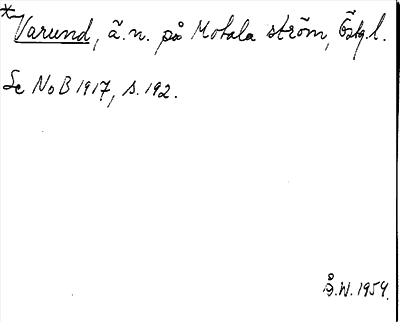 *Varund, ä.n. på Motala ström, Östg.l.
Se NoB 1917, s. 192.
Å.W. 1959.